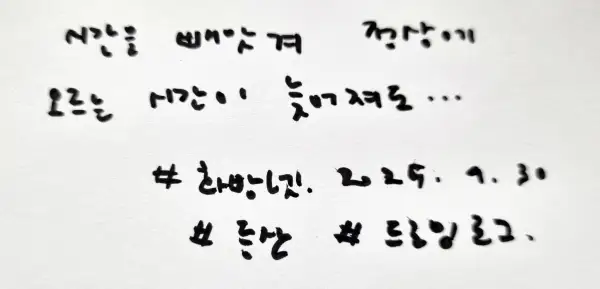 시간을 빼앗겨 정상에
오르는 시간이 늦어져도...
# 화방넷. 2025. 9. 30
# 등산 # 드로잉로그.